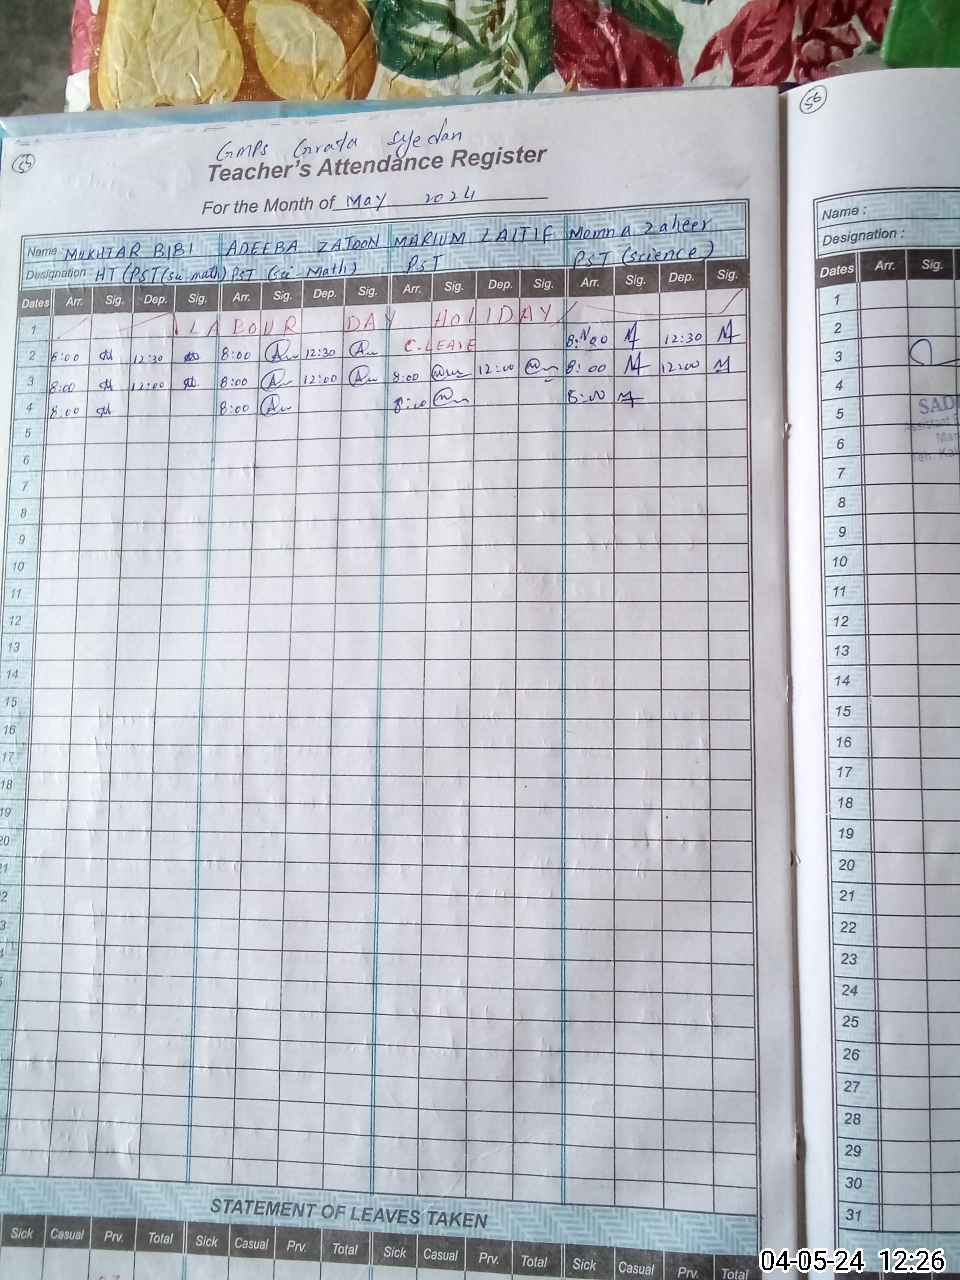 55
GMPS Grata Syedan
Teacher's Attendance Register
For the Month of May 2024
Name: MUKHTAR BIBI ADEEBA ZATOON MARIUM LATIF Momna Zaheer
Designation: HT (PST (sci math) PST (sci Math) PST PST (science)
Dates Arr. Sig. Dep. Sig. Arr. Sig. Dep. Sig. Arr. Sig. Dep. Sig. Arr. Sig. Dep. Sig.
1 LABOUR DAY HOLIDAY
2 8:00 12:30 8:00 12:30 C.LEAVE 8:00 12:30
3 8:00 12:00 8:00 12:00 8:00 12:00 8:00 12:00
4 8:00 8:00 8:00 8:00
5
6
7
8
9
10
11
12
13
14
15
16
17
18
19
20
STATEMENT OF LEAVES TAKEN
Sick Casual Prv. Total Sick Casual Prv. Total Sick Casual Prv. Total Sick Casual Prv. Total
56
Name :
Designation :
Dates Arr. Sig.
1
2
3
4
5
6
7
8
9
10
11
12
13
14
15
16
17
18
19
20
21
22
23
24
25
26
27
28
29
30
31
04-05-24 12:26